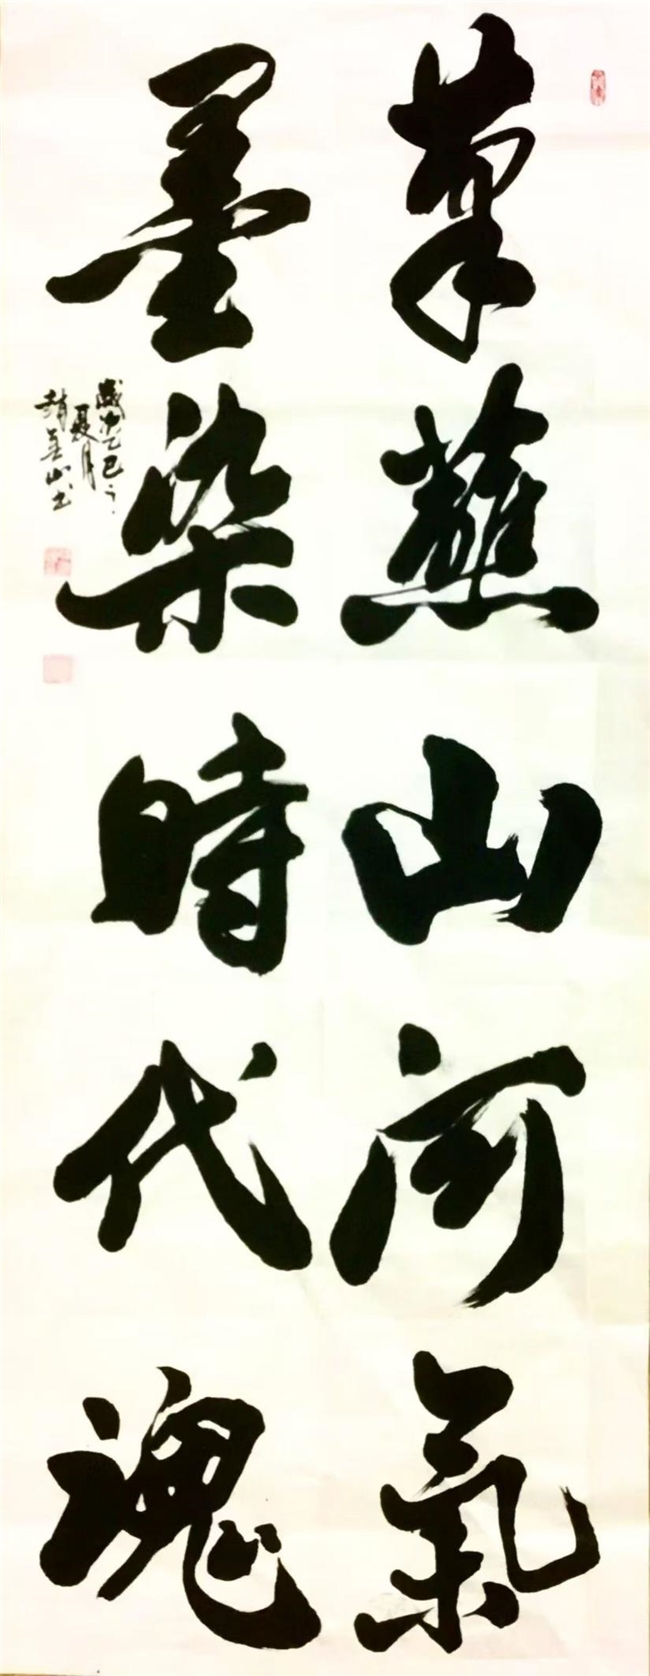 筆蘸山河氣
墨染時代魂
歲次乙巳之
夏月
山书